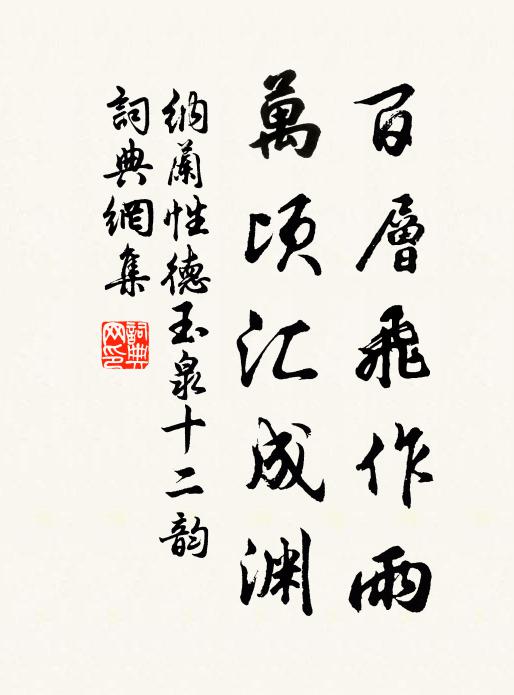 百層飛作雨
萬頃汇成淵
納蘭性德玉泉十二韵
詞典網集
詞典
网印